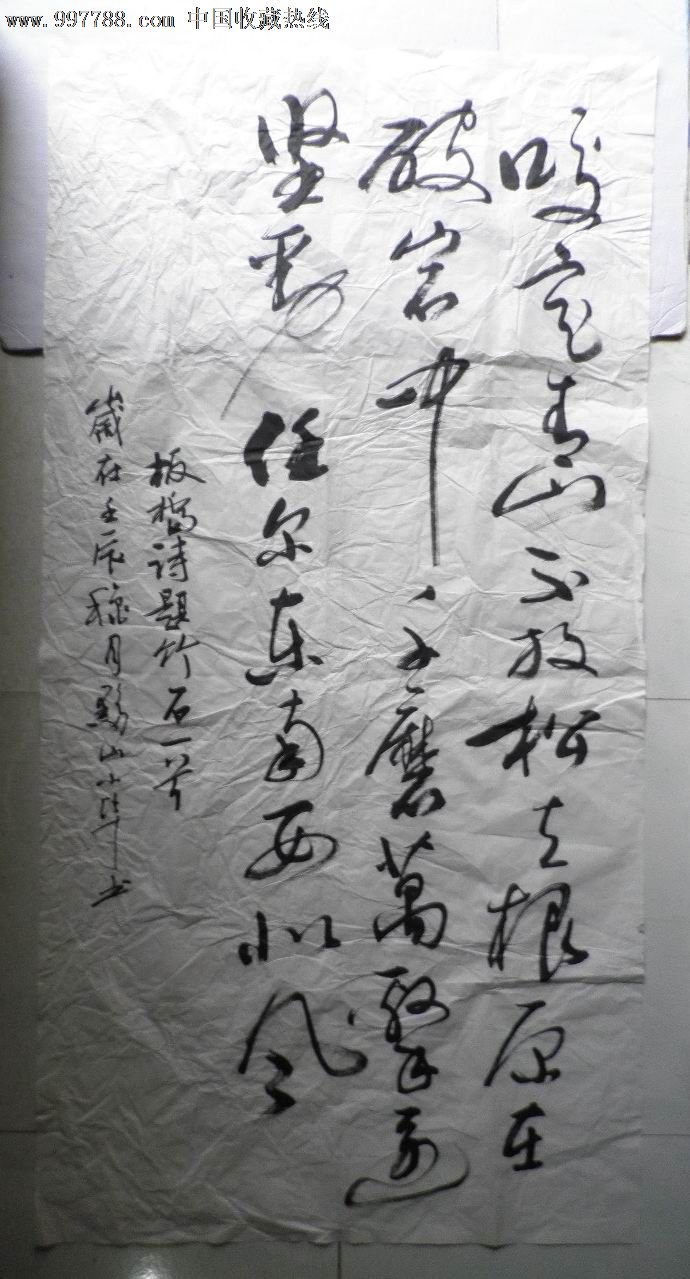 www.997788.com 中国收藏热线
咬定青山不放松立根原在
破岩中千磨萬擊還
坚劲任尔东南西北风
板橋詩題竹石一首
歲在壬辰月山小书